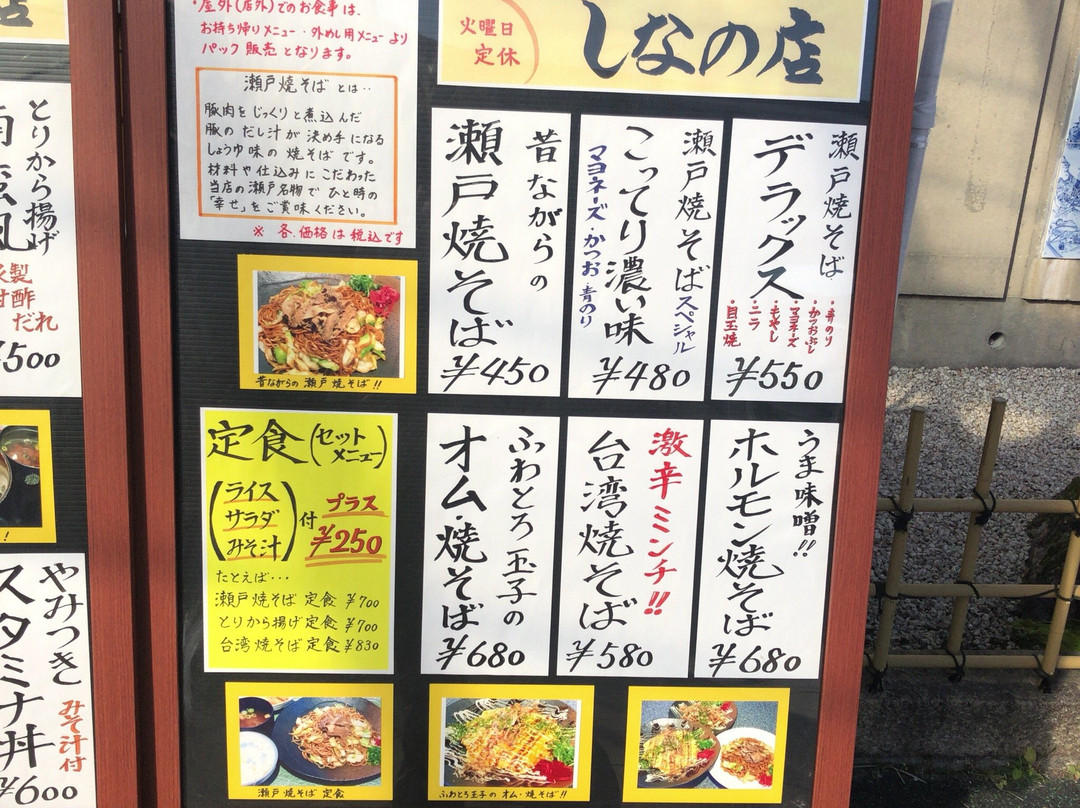 ・屋外(店外)でのお食事は、
お持ち帰りメニュー・外めし用メニューより
パック販売となります。
瀬戸焼そばとは‥
豚肉をじっくりと煮込んだ
豚のだし汁が決め手になる
しょうゆ味の焼そばです。
材料や仕込みにこだわった
当店の瀬戸名物でひと時の
「幸せ」をご賞味ください。
※各、価格は税込です
火曜日
定休
しなの店
瀬戸焼そば
デラックス
・青のり
・かつおぶし
・マヨネーズ
・もやし
・ニラ
・目玉焼
¥550
瀬戸焼そばスペシャル
こってり濃い味
マヨネーズ・かつお・青のり
¥480
昔ながらの
瀬戸焼そば
¥450
昔ながらの瀬戸焼そば!!
うま味噌!!
ホルモン焼そば
¥680
激辛ミンチ!!
台湾焼そば
¥580
ふわとろ玉子の
オム・焼そば
¥680
定食(セットメニュー)
(ライス
サラダ
みそ汁)付
プラス
¥250
たとえば・・・
瀬戸焼そば定食 ¥700
とりから揚げ定食 ¥700
台湾焼そば定食 ¥830
瀬戸焼そば定食
ふわとろ玉子のオム・焼そば!!
とりから揚げ
甘酢
だれ
¥500
やみつき
スタミナ丼
みそ汁付
¥600